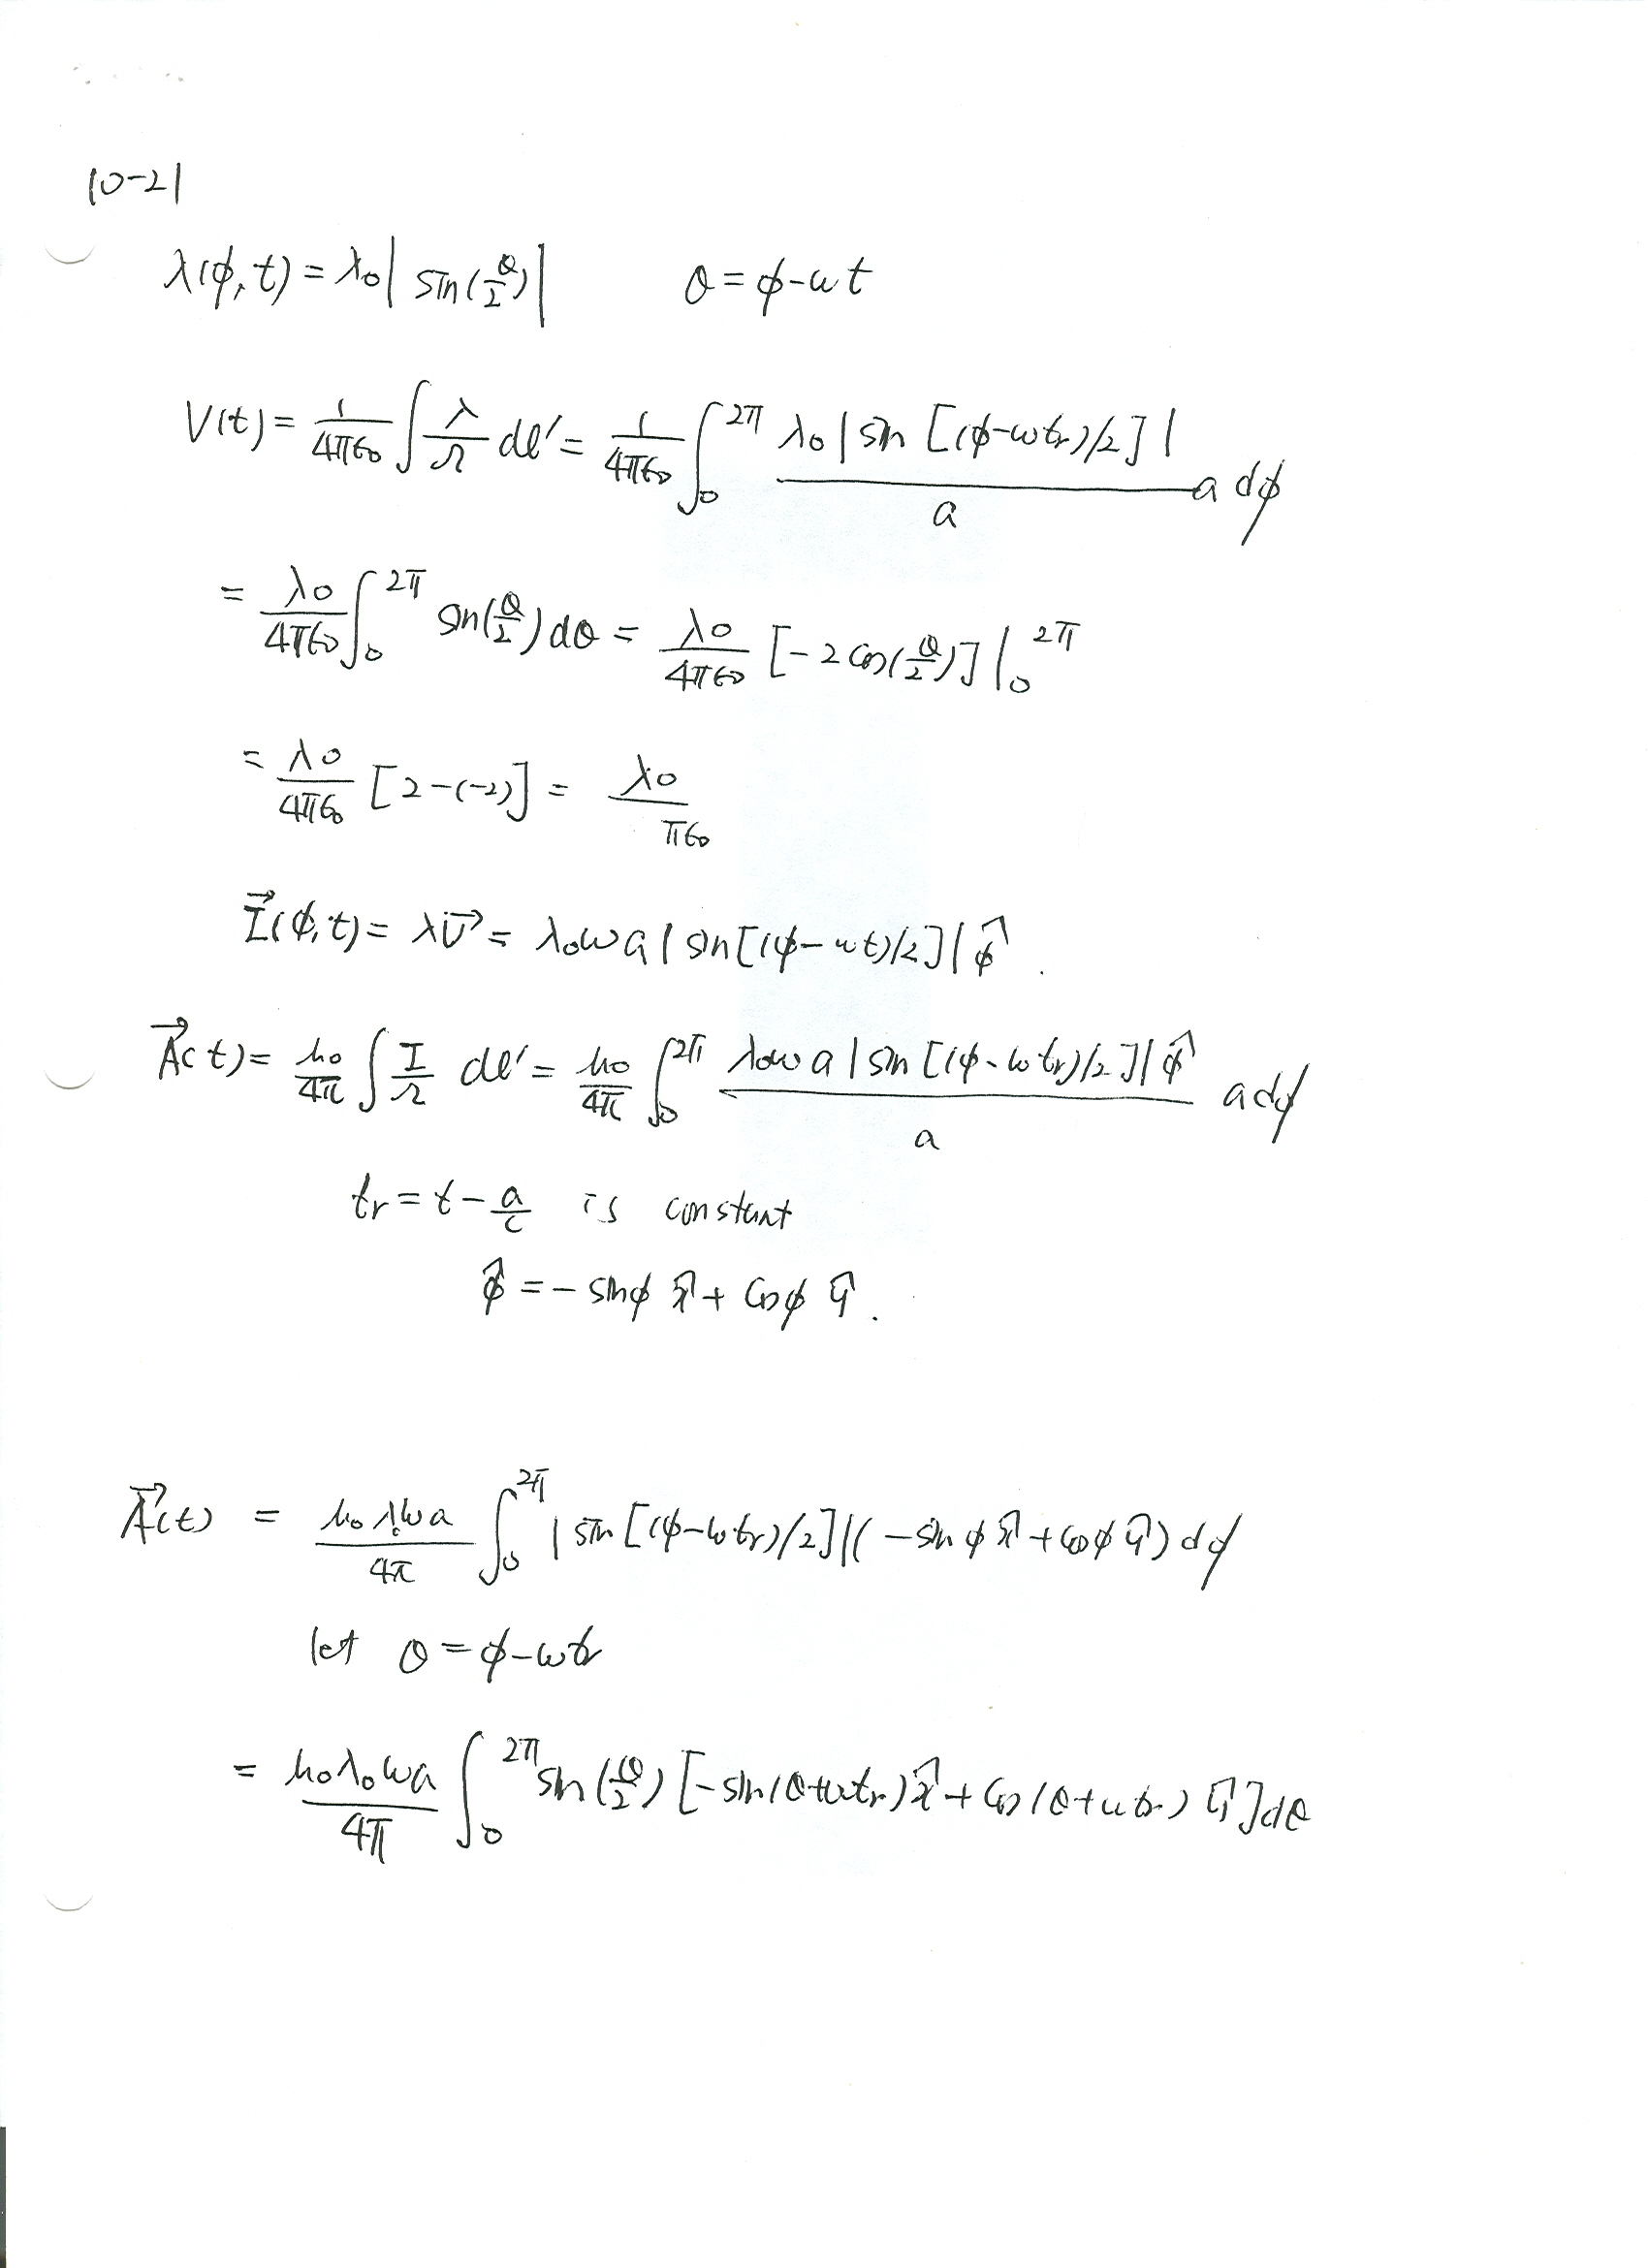 10-21
λ(φ,t) = λ0 | sin(θ/2) |   θ = φ-ωt
V(t) = 1/4πε0 ∫ λ/r dl' = 1/4πε0 ∫_0^2π λ0 | sin [(φ-ωtr)/2] | / a a dφ
= λ0/4πε0 ∫_0^2π sin(θ/2) dθ = λ0/4πε0 [-2 cos(θ/2)] |_0^2π
= λ0/4πε0 [2-(-2)] = λ0/πε0
I⃗(φ,t) = λv⃗ = λ0ωa | sin[(φ-ωt)/2] | φ̂ .
A⃗(t) = μ0/4π ∫ I/r dl' = μ0/4π ∫_0^2π λ0ωa | sin [(φ-ωtr)/2] | φ̂ / a a dφ
tr = t - a/c is constant
φ̂ = - sinφ x̂ + cosφ ŷ .
A⃗(t) = μ0 λ0 ωa / 4π ∫_0^2π | sin [(φ-ωtr)/2] | ( -sin φ x̂ + cosφ ŷ ) dφ
let θ = φ-ωtr
= μ0λ0ωa / 4π ∫_0^2π sin (θ/2) [-sin(θ+ωtr) x̂ + cos(θ+ωtr) ŷ ] dθ